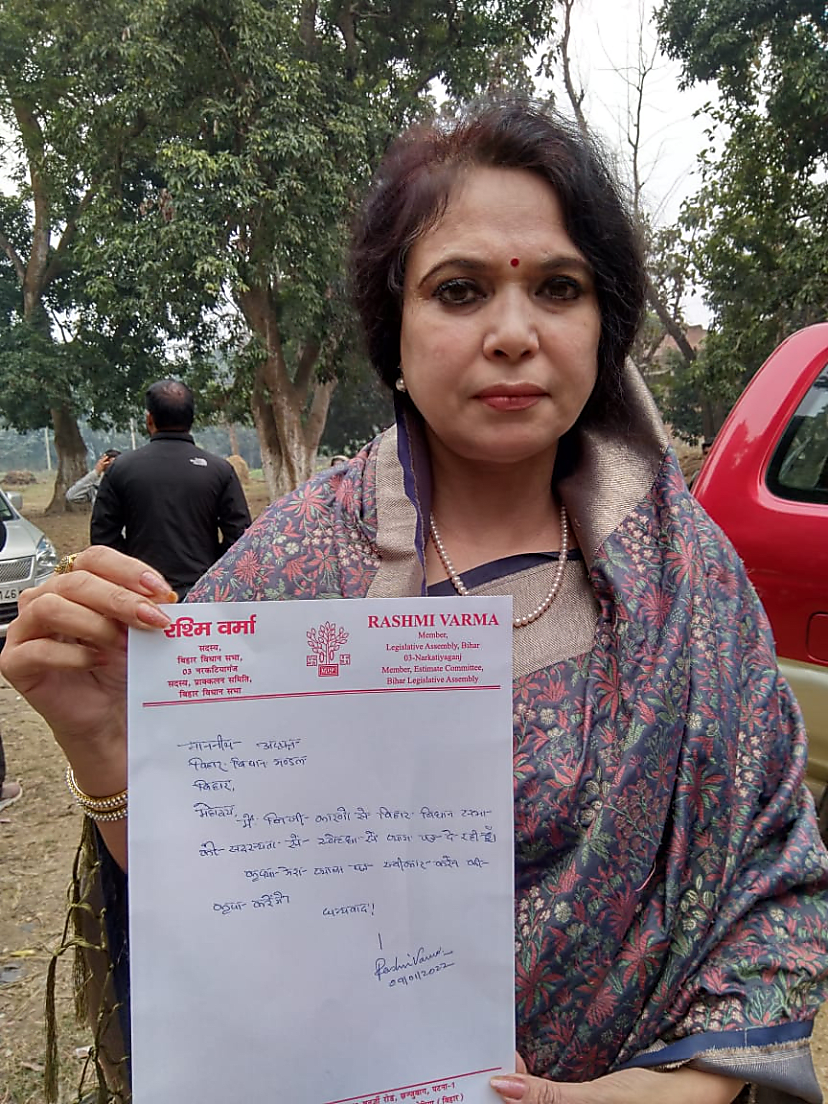 रश्मि वर्मा
सदस्य,
बिहार विधान सभा,
03 नरकटियागंज
सदस्य, प्राक्कलन समिति,
बिहार विधान सभा
RASHMI VARMA
Member,
Legislative Assembly, Bihar
03-Narkatiyaganj
Member, Estimate Committee,
Bihar Legislative Assembly
माननीय अध्यक्ष
बिहार विधान मण्डल
बिहार,
महोदय,
मैं निजी कारणों से बिहार विधान सभा
की सदस्यता से स्वेच्छा से त्याग पत्र दे रही हूँ।
कृप्या मेरा त्याग पत्र स्वीकार करने की
कृपा करेंगे।
धन्यवाद!
Rashmi Varma
09/01/2022
रोड, छज्जुबाग, पटना-1
(बिहार)